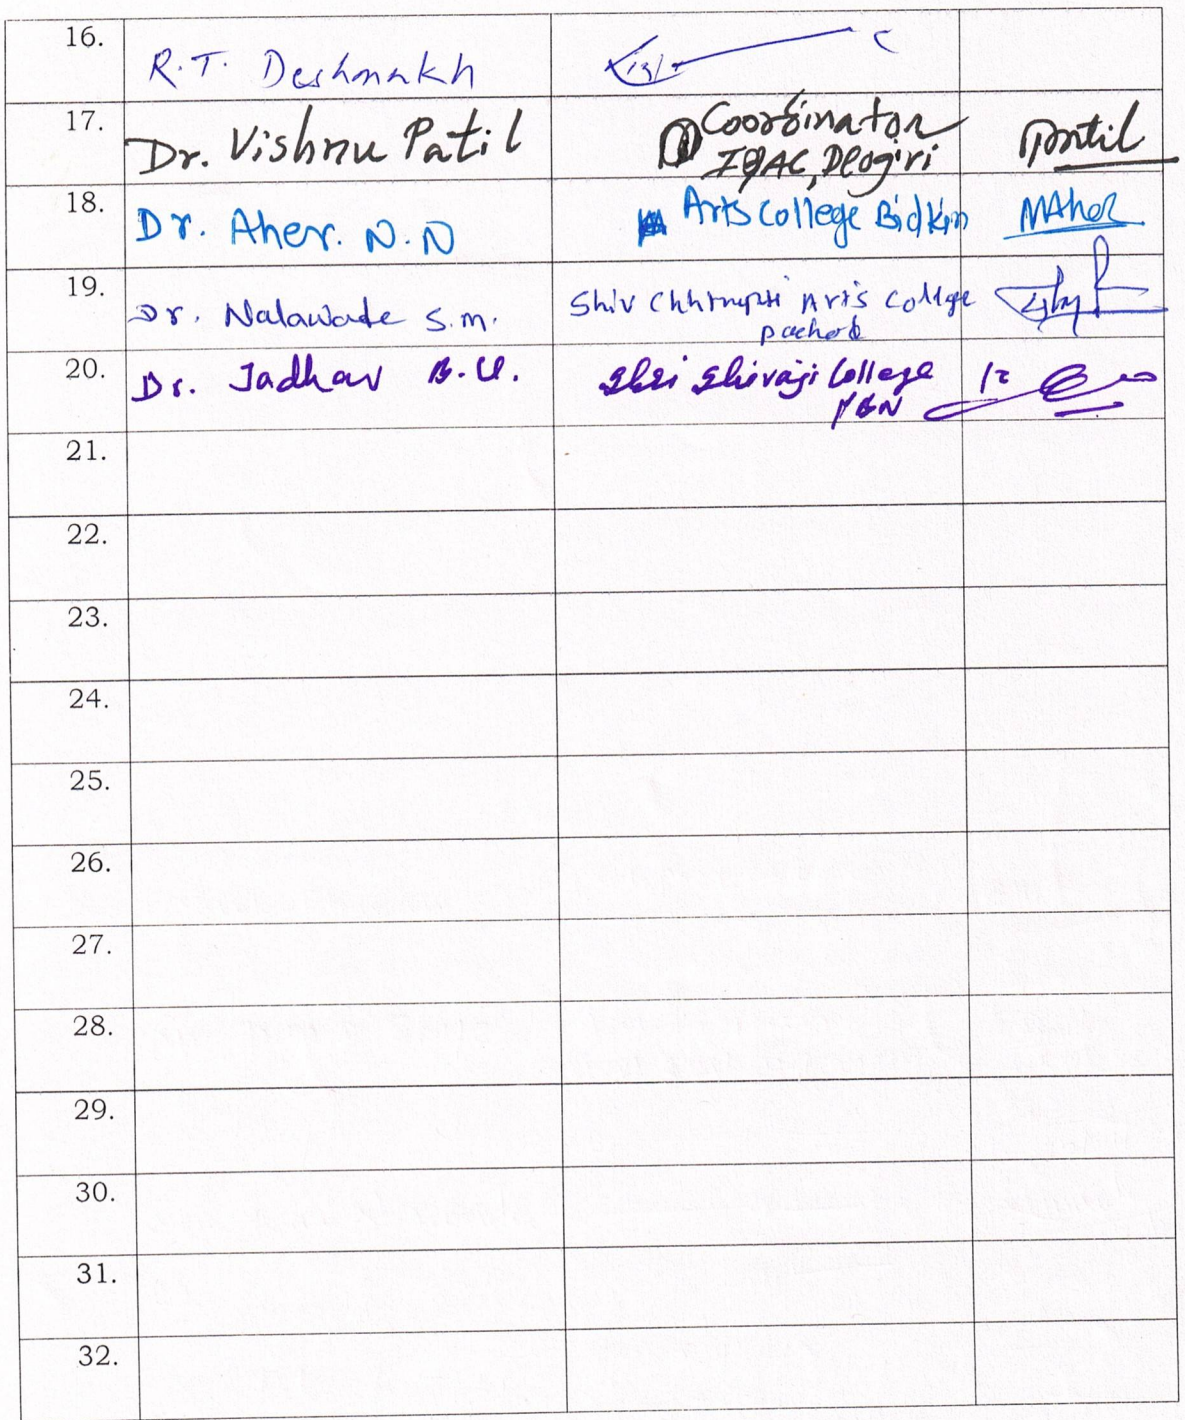 16. R.T. Deshmukh
17. Dr. Vishnu Patil Coordinator
IQAC, Deogiri Patil
18. Dr. Aher. N.N Arts College Bidkin NAher
19. Dr. Nalawade S.M. Shiv Chhtrapti Arts College
pachod
20. Dr. Jadhav B.U. Shri Shivaji College
PBN
21.
22.
23.
24.
25.
26.
27.
28.
29.
30.
31.
32.